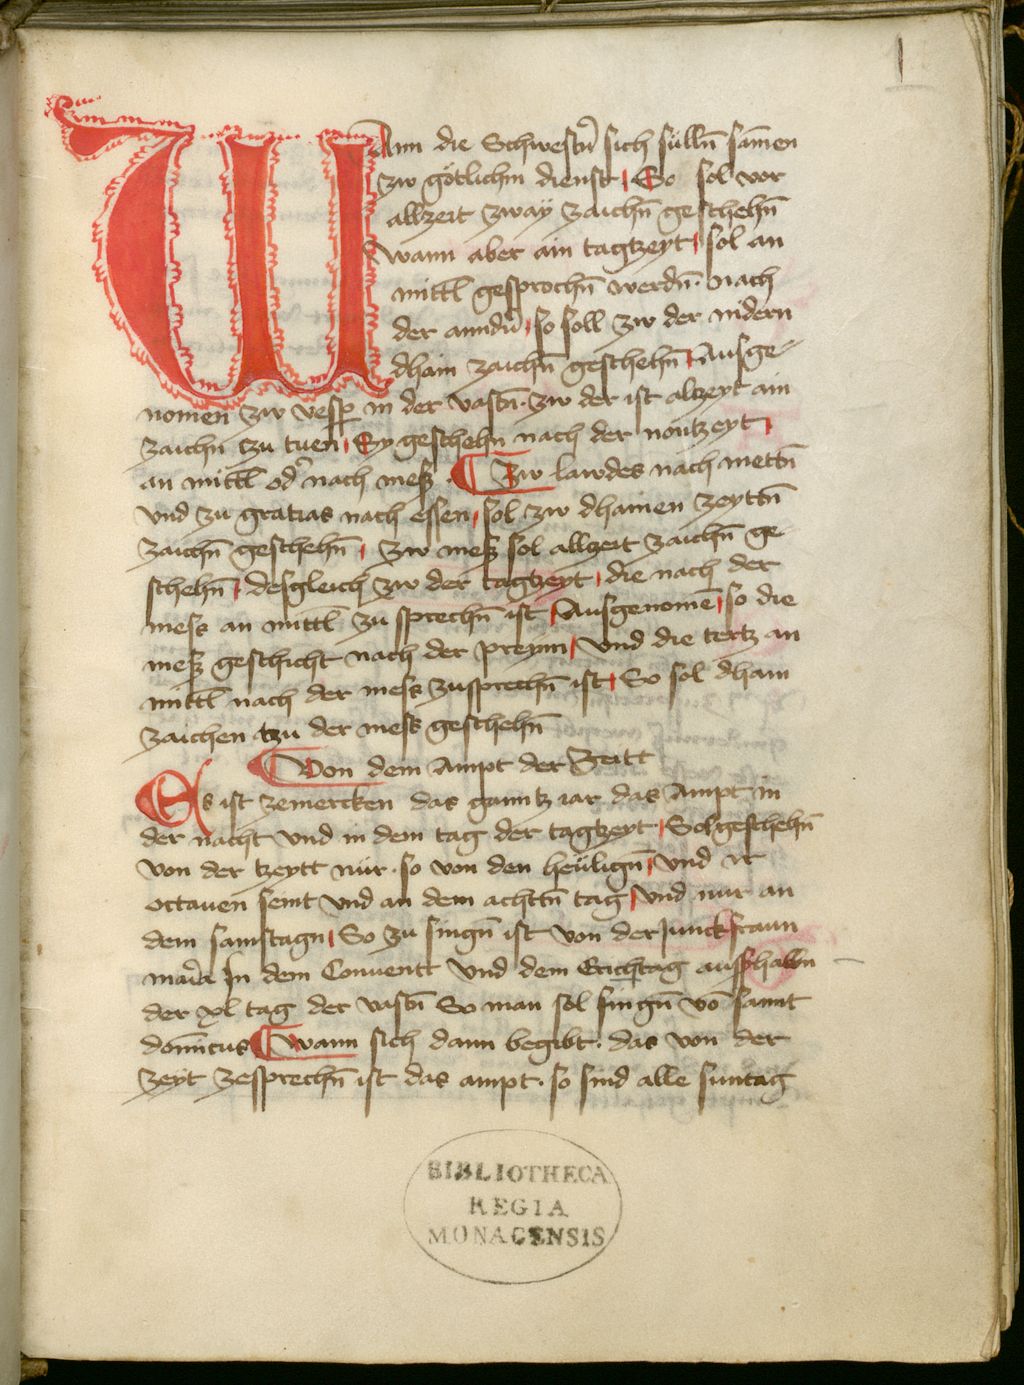 1
WAnn die Schwestn̄ sich sülln̄ sām̄en
zw gótlichm dienst So sol vor
allzeit zwaÿ zaichn̄ geschehn̄
Wann aber ain tagtzeyt sol an
mittl gesprochn̄ werdn̄. nach
der anndn̄ so soll zw der nidern
dhain zaichn̄ geschehn̄ Ausge-
nomen zw vesp̄ in der vastn̄. zw der ist alltzeyt ain
zaichn̄ tzu tuen Ey geschehn̄ nach der nontzeyt
an mittl od̄ nach meß. Zw lawdes nach mettn̄
vnd zu gratias nach essen sol zw dhainen zeyttn̄
zaichn̄ geschehn̄ Zw meß sol allzeit zaichn̄ ge
schehn̄ desgleich zw der tagtzeyt die nach der
mess an mittl zu sprechn̄ ist Ausgenomē so die
meß geschicht nach der preym Vnd die tertz an
mittl nach der mess zusprechn̄ ist So sol dhain
zaichen tzu der mess geschehn̄
Von dem Ampt der Zeitt
Es ist zemercken das gantz iar das Ampt in
der nacht vnd in dem tag der tagtzeyt Sol geschehn̄
von der tzeytt nür. so von den heÿlign̄ vnd ir
octauen seint vnd an dem achttn̄ tag vnd nur an
dem samstagn So zu singn̄ ist von der Junckfrawn
maria In dem Conuentt Vnd dem Erichtag ausserhalbn
der xl tag der vastn̄ So man sol singn̄ vō sannt
dom̄icus Wann sich dann begibt. das von der
zeyt zesprechn̄ ist das ampt. so sind alle suntag
BIBLIOTHECA
REGIA
MONACENSIS